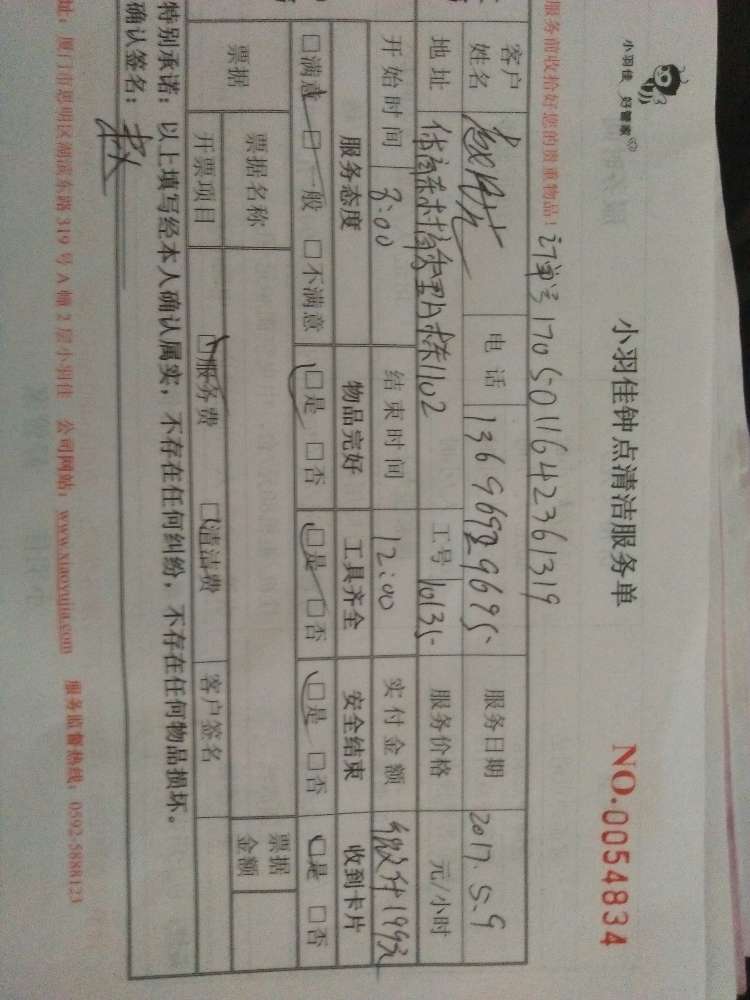 小羽佳 好管家
小羽佳钟点清洁服务单
NO.0054834
服务前收拾好您的贵重物品!
订单号 1705011642361319
客户姓名 电话 服务日期 2017.5.9
地址 1102 工号 10135 服务价格 元/小时
开始时间 8:00 结束时间 12:00 实付金额 微付199元
服务态度 物品完好 工具齐全 安全结束 收到卡片
□满意 □一般 □不满意 □是 □否 □是 □否 □是 □否 □是 □否
票据 票据名称 票据金额
开票项目 □服务费 □清洁费 客户签名
特别承诺:以上填写经本人确认属实,不存在任何纠纷,不存在任何物品损坏。
确认签名:
址:厦门市思明区湖滨东路319号A幢2层小羽佳 公司网站:www.xiaoyujia.com 服务监督热线:0592-5888123